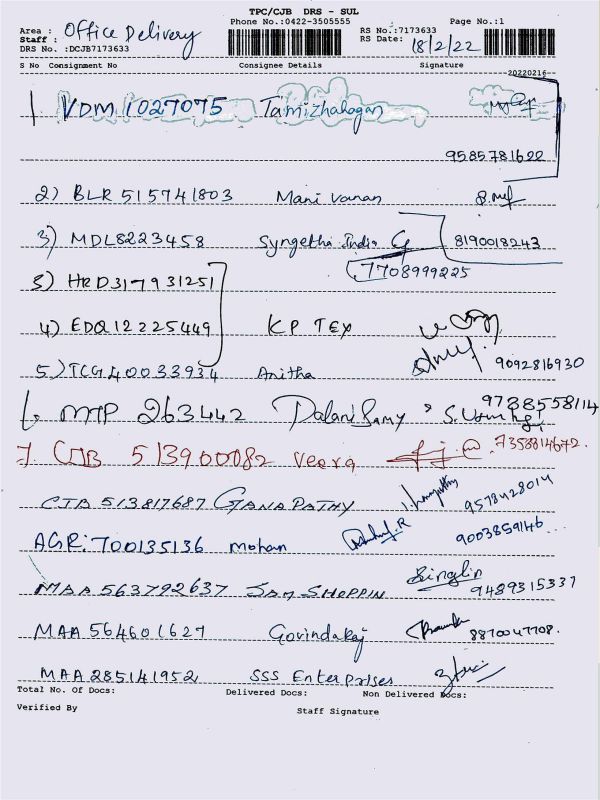 TPC/CJB DRS - SUL
Phone No.:0422-3505555 Page No.:1
Area : Office Delivery RS No.:7173633
Staff : RS Date: 18/2/22
DRS No. :DCJB7173633
S No Consignment No Consignee Details Signature
20220216
1 VDM 1027075 Tamizhalagan
9585781622
2) BLR 515741803 Mani Vanan
3) MDL8223458 Syngetha India 8190018243
7708999225
3) HRD317931251
4) EDQ12225449 K P TEX
5) TCG40033934 Anitha 9092816930
6 MTP 263442 Palani Samy 9788558114
7 CJB 513900082 Veera 7358814672.
CTB 513817687 GANAPATHY 9578428014
AGR: 700135136 mohan 9003859146
MAA 563792637 SAM SHOPPIN 9489315337
MAA 564601627 Govindaraj 8870047708.
MAA 285141952 SSS Enterprises
Total No. Of Docs: Delivered Docs: Non Delivered Docs:
Verified By Staff Signature